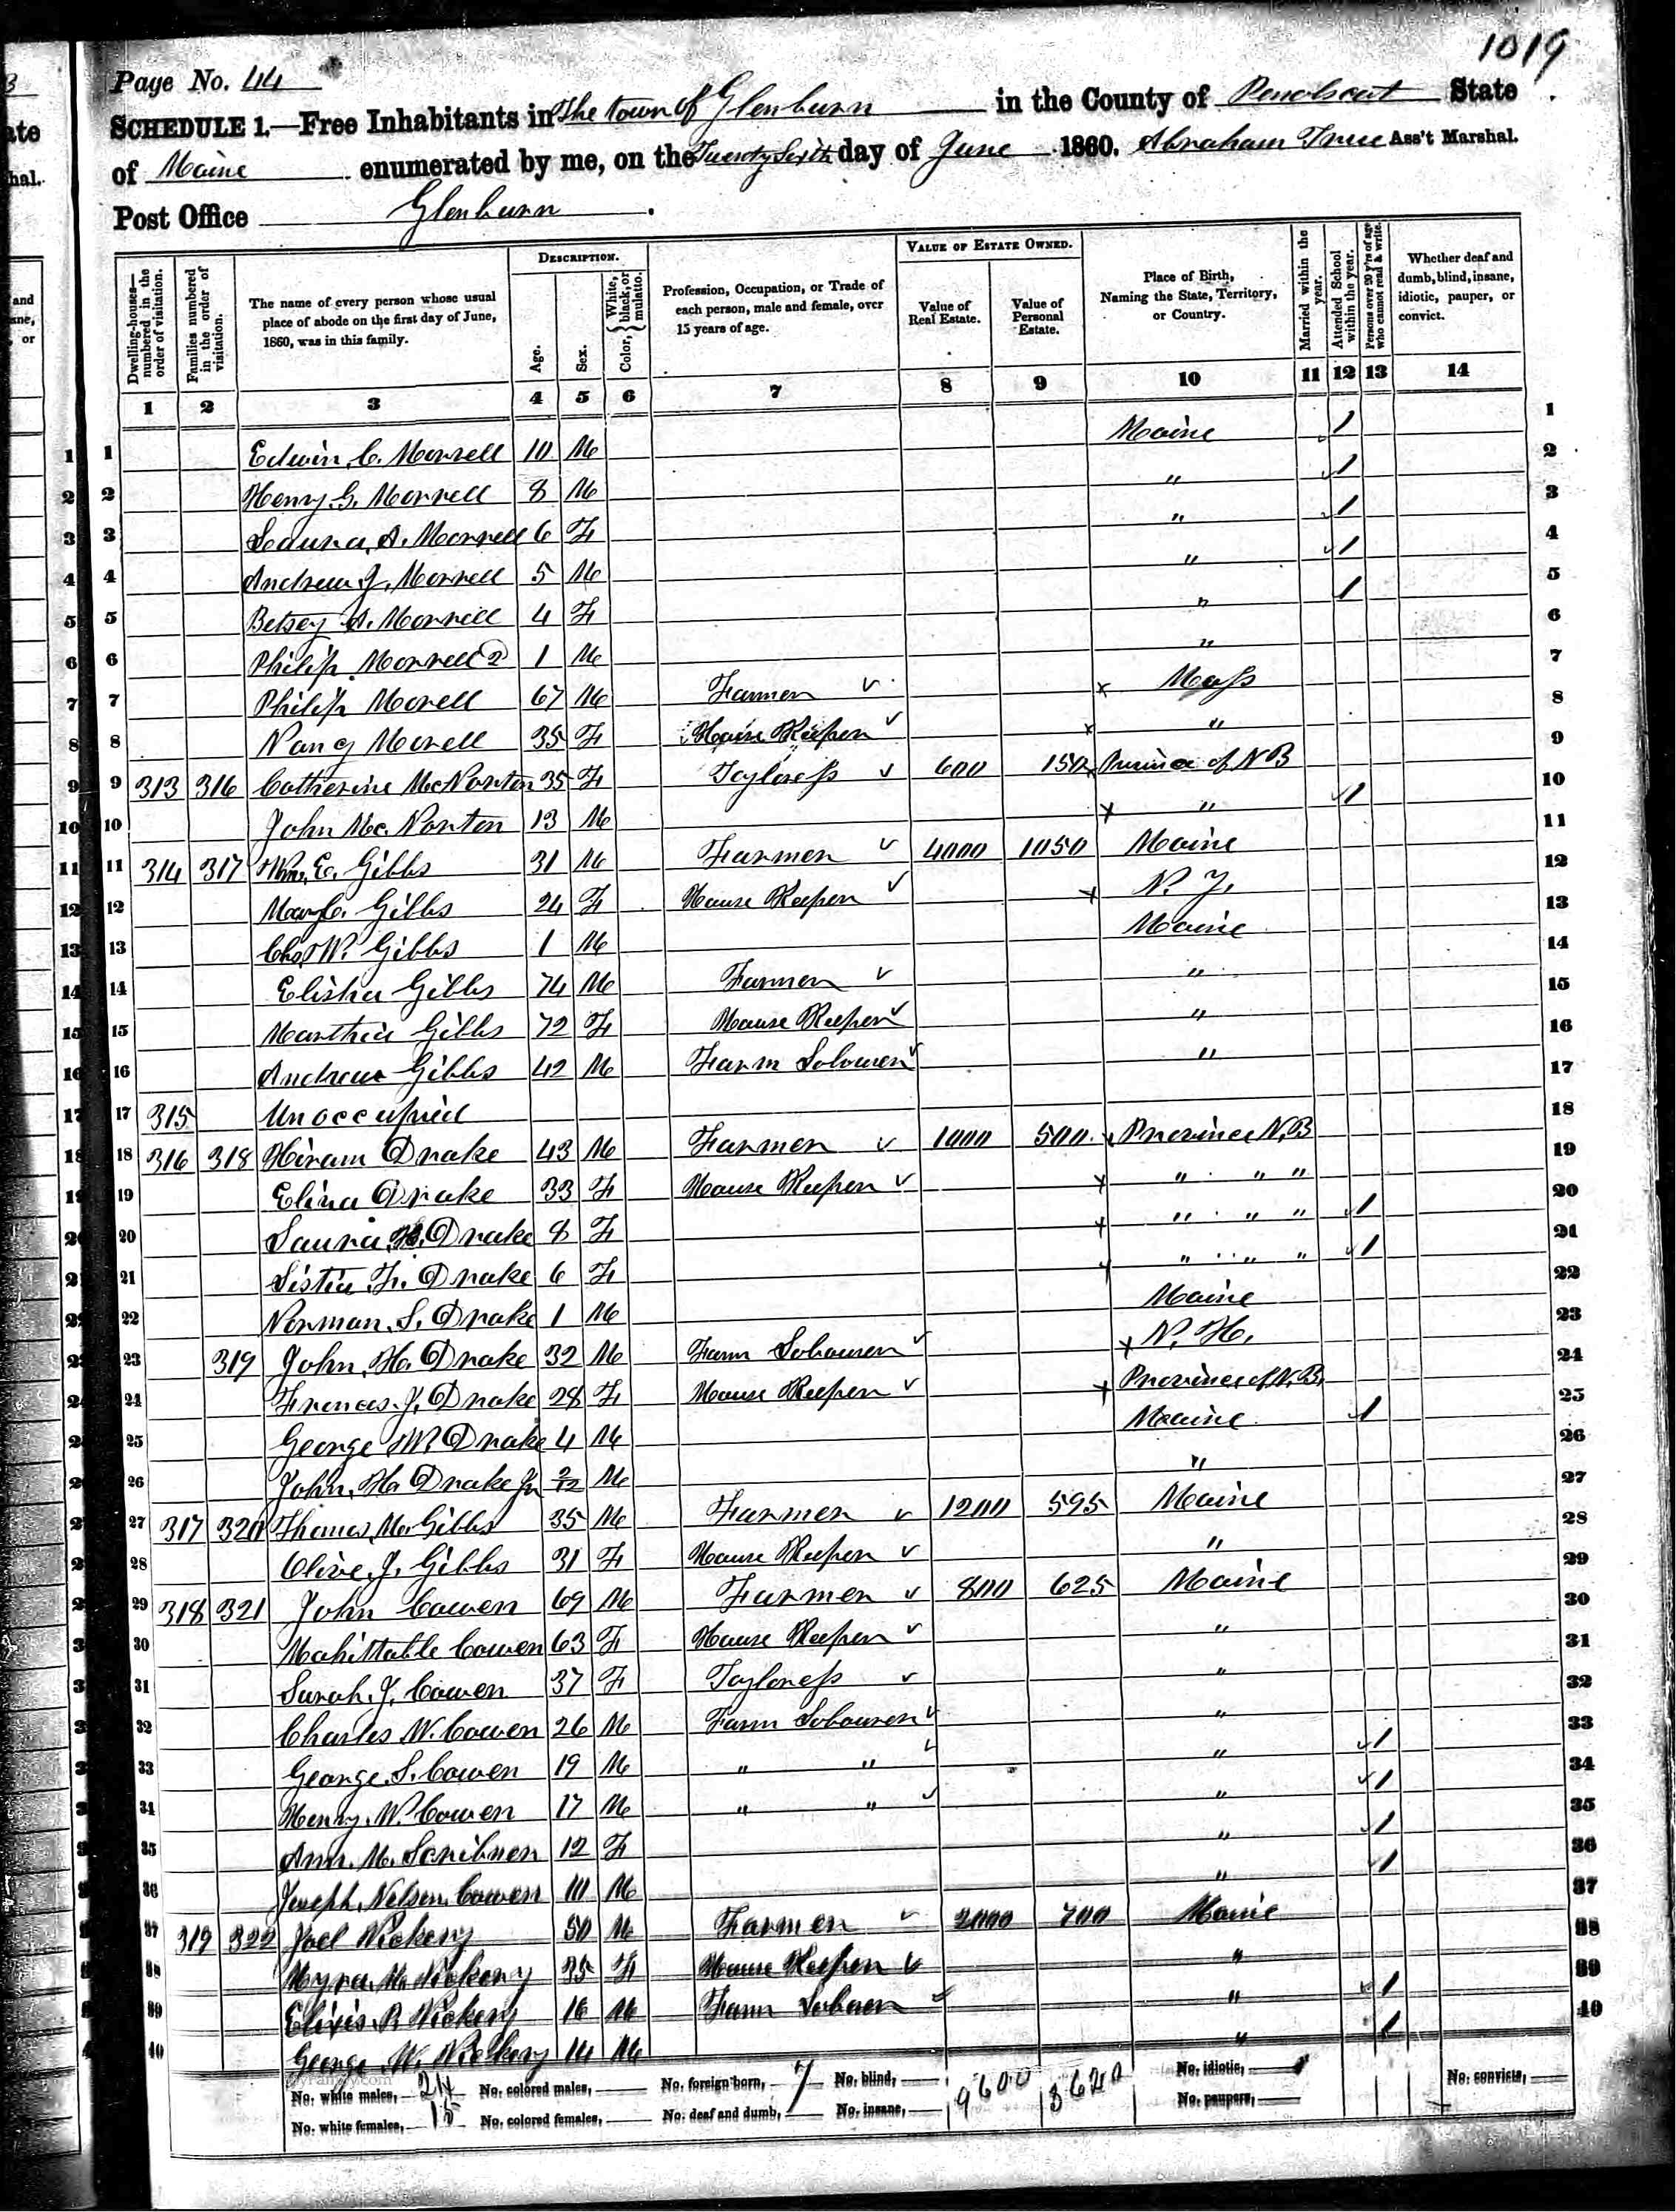 1019
Page No. 44
SCHEDULE 1.—Free Inhabitants in The town of Glenburn in the County of Penobscot State
of Maine enumerated by me, on the Twenty Sixth day of June 1860. Abraham True Ass't Marshal.
Post Office Glenburn.
Dwelling-houses—numbered in the order of visitation.
Families numbered in the order of visitation.
The name of every person whose usual place of abode on the first day of June, 1860, was in this family.
DESCRIPTION.
Age.
Sex.
Color, White, black, or mulatto.
Profession, Occupation, or Trade of each person, male and female, over 15 years of age.
VALUE OF ESTATE OWNED.
Value of Real Estate.
Value of Personal Estate.
Place of Birth, Naming the State, Territory, or Country.
Married within the year.
Attended School within the year.
Persons over 20 y'rs of age who cannot read & write.
Whether deaf and dumb, blind, insane, idiotic, pauper, or convict.
1 2 3 4 5 6 7 8 9 10 11 12 13 14
1 Edwin C. Morrell 10 M Maine / 1
2 Henry G. Morrell 8 M " / 2
3 A. Morrell 6 F " / 3
4 Andrew J. Morrell 5 M " / 4
5 Betsey A. Morrell 4 F " / 5
6 Philip Morrell 2 1 M " 6
7 Philip Morell 67 M Farmer Mass 7
8 Nancy Morell 35 F House Keeper " 8
9 313 316 Catherine McNorton 35 F Tayloress 600 150 Province of N B 9
10 John Mc. Norton 13 M " / 10
11 314 317 Wm. E. Gibbs 31 M Farmer 4000 1050 Maine 11
12 Mary C. Gibbs 24 F House Keeper N. Y. 12
13 Chs. W. Gibbs 1 M Maine 13
14 Elisha Gibbs 74 M Farmer " 14
15 Martha Gibbs 72 F House Keeper " 15
16 Andrew Gibbs 42 M Farm Labourer " 16
17 315 Unoccupied 17
18 316 318 Hiram Drake 43 M Farmer 1000 500 Province N.B 18
19 Eliza Drake 33 F House Keeper " " " 19
20 Laura H. Drake 8 F " " " / 20
21 F. Drake 6 F " " " / 21
22 Norman S. Drake 1 M Maine 22
23 319 John. H. Drake 32 M Farm Labourer N. H. 23
24 Frances J. Drake 28 F House Keeper Province of N. B. 24
25 George W. Drake 4 M Maine / 25
26 John. H. Drake Jr 2/12 M " 26
27 317 320 Thomas M. Gibbs 35 M Farmer 1200 595 Maine 27
28 Olive. J. Gibbs 31 F House Keeper " 28
29 318 321 John Cowen 69 M Farmer 800 625 Maine 29
30 Mahittable Cowen 63 F House Keeper " 30
31 Sarah. J. Cowen 37 F Tayloress " 31
32 Charles W. Cowen 26 M Farm Labourer " 32
33 George. S. Cowen 19 M " " " / 33
34 Henry. W. Cowen 17 M " " " / 34
35 Ann. M. Scribner 12 F " / 35
36 Joseph. Nelson. Cowen 10 M " / 36
37 319 322 Joel Vickery 50 M Farmer 2000 700 Maine 37
38 Myra. M. Vickery 35 F House Keeper " 38
39 P. Vickery 16 M Farm " / 39
40 George. W. Vickery 14 M " / 40
No. white males, 24 No. colored males, No. foreign born, 7 No. blind, 9600 3620 No. idiotic, No. convicts,
No. white females, 15 No. colored females, No. deaf and dumb, No. insane, No. paupers,